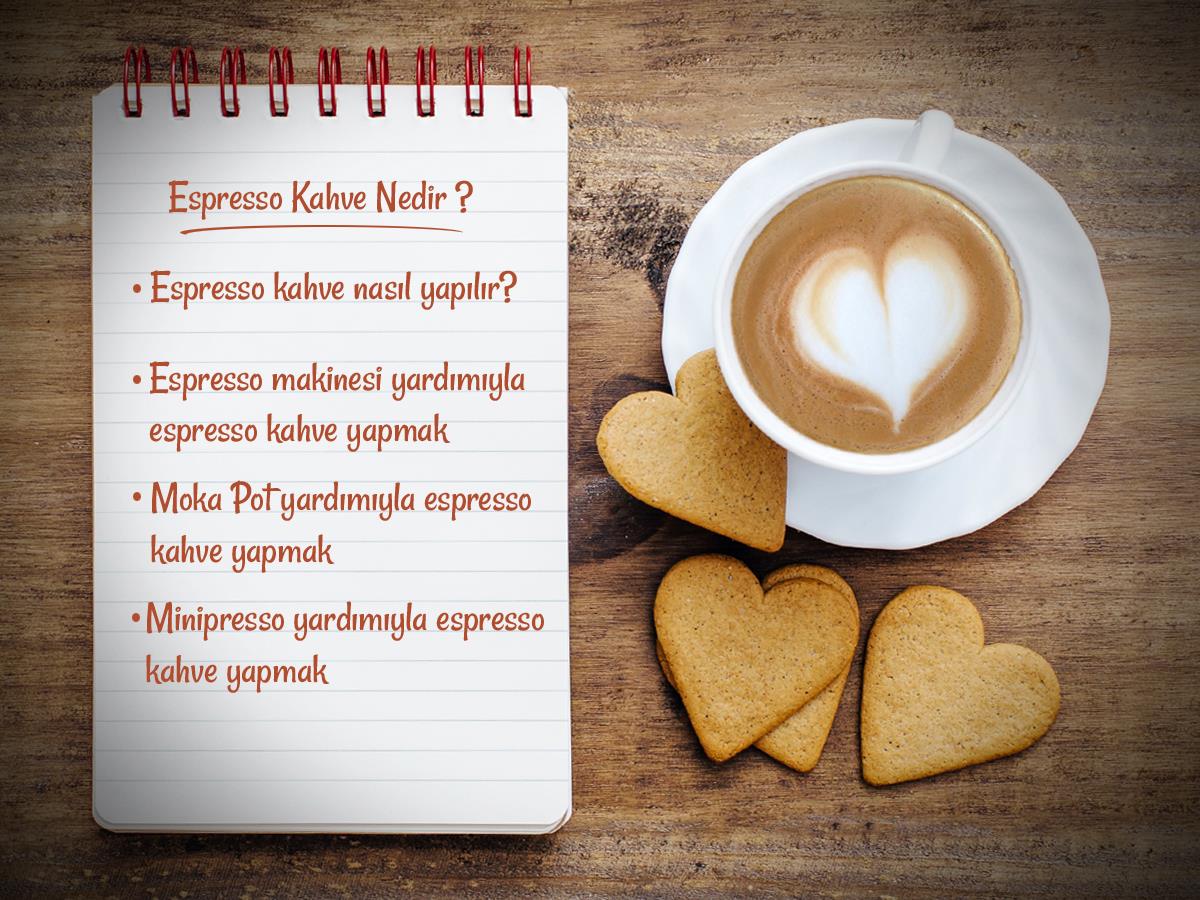 Espresso Kahve Nedir ?
• Espresso kahve nasıl yapılır?
• Espresso makinesi yardımıyla
espresso kahve yapmak
• Moka Pot yardımıyla espresso
kahve yapmak
• Minipresso yardımıyla espresso
kahve yapmak